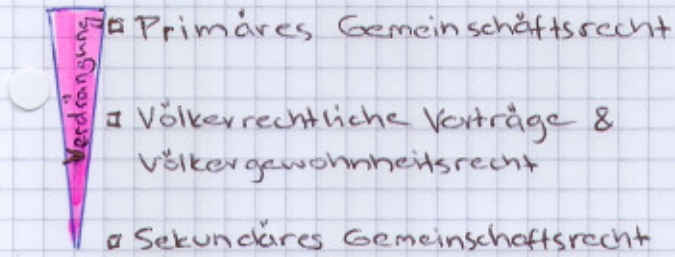 Verdrängung
Primäres Gemeinschaftsrecht
Völkerrechtliche Verträge &
Völkergewohnheitsrecht
Sekundäres Gemeinschaftsrecht